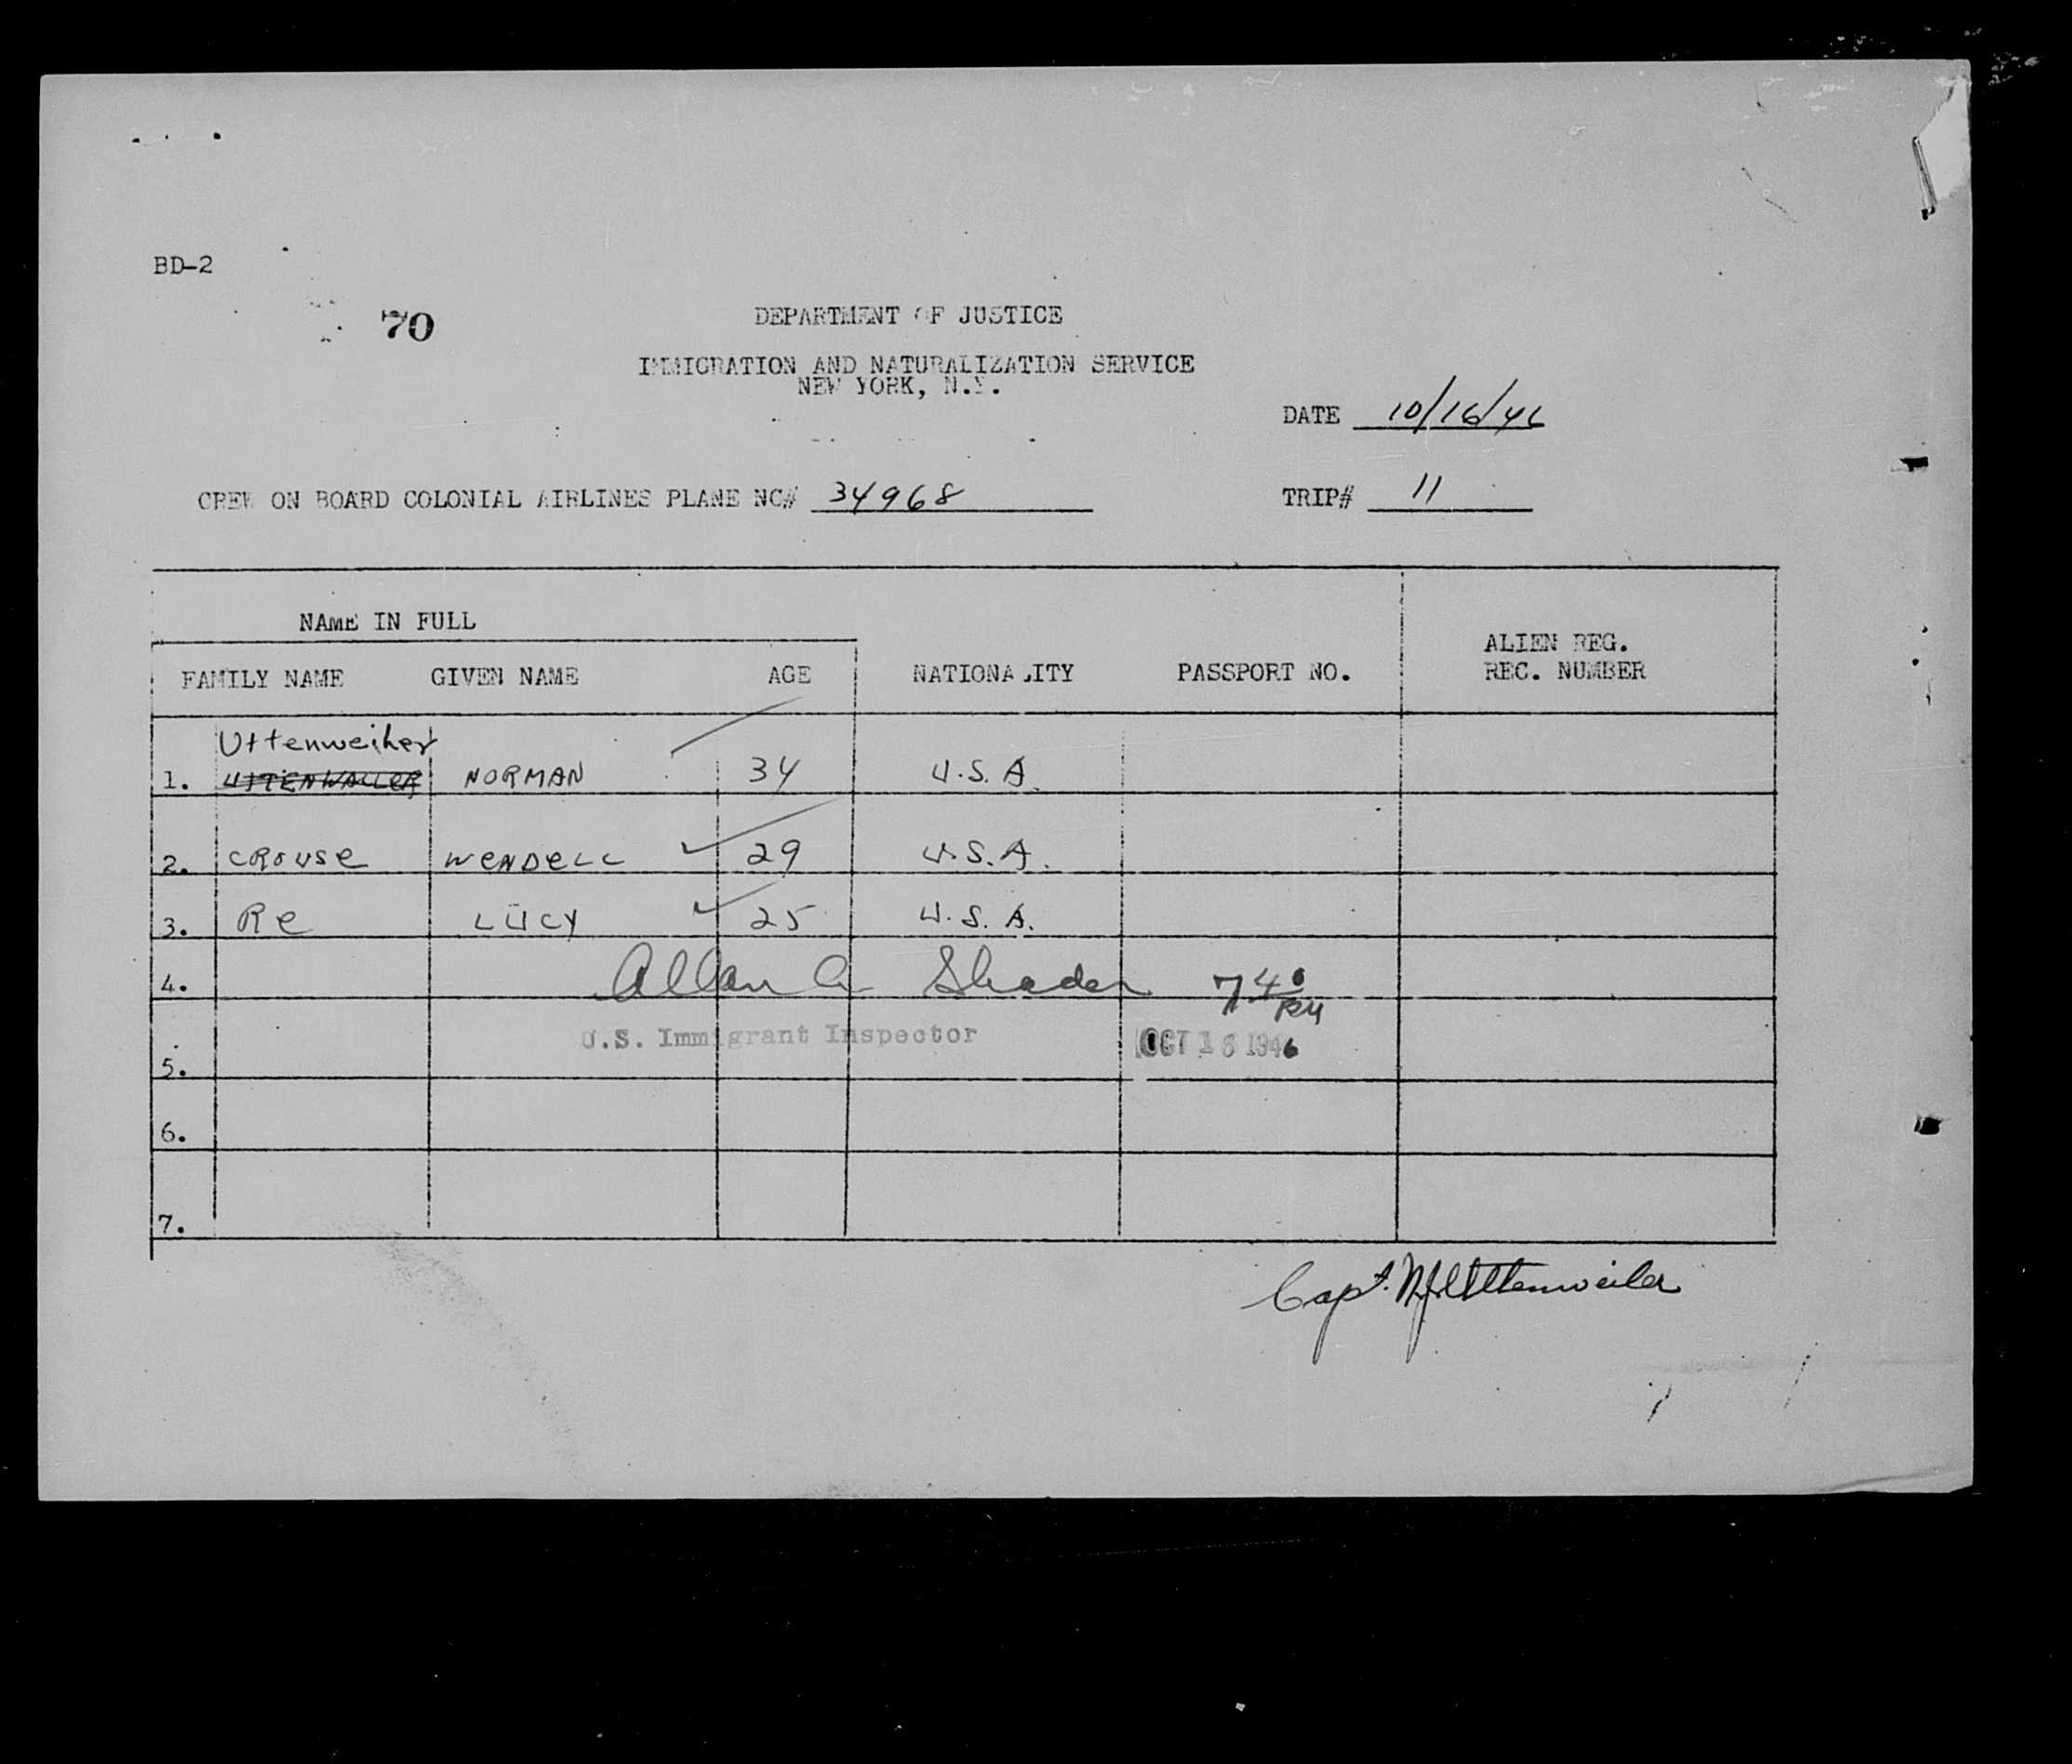 BD-2
70
DEPARTMENT OF JUSTICE
IMMIGRATION AND NATURALIZATION SERVICE
NEW YORK, N.Y.
DATE 10/16/46
CREW ON BOARD COLONIAL AIRLINES PLANE NC# 34968 TRIP# 11
NAME IN FULL
FAMILY NAME GIVEN NAME AGE NATIONALITY PASSPORT NO. ALIEN REG. REC. NUMBER
Uttenweiher
1. UTTENWALLER NORMAN 34 U.S.A.
2. CROUSE WENDELL 29 U.S.A.
3. Re LUCY 25 U.S.A.
4. Allan Shader 7 40 PM
U.S. Immigrant Inspector OCT 16 1946
5.
6.
7.
Capt. Uttenweiler